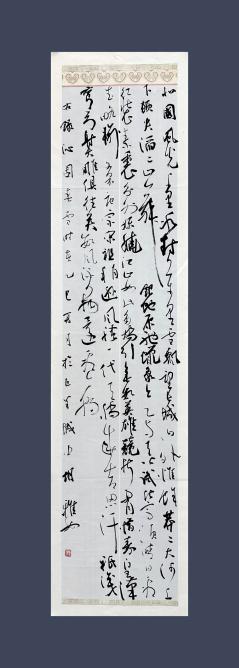 北國風光千里冰封萬里雪飄望長城内外惟馀莽二大河上
下頓失滔二山舞銀蛇原馳蠟象欲与天公試比高須晴日看
紅裝素裹分外妖嬈江山如此多嬌引無數英雄競折腰惜秦皇漢
武略輸文采唐宗宋祖稍遜風騷一代天驕成吉思汗祇識
彎弓射大雕俱往矣數風流人物還看今朝
右錄沁園春雪时在乙巳夏月於